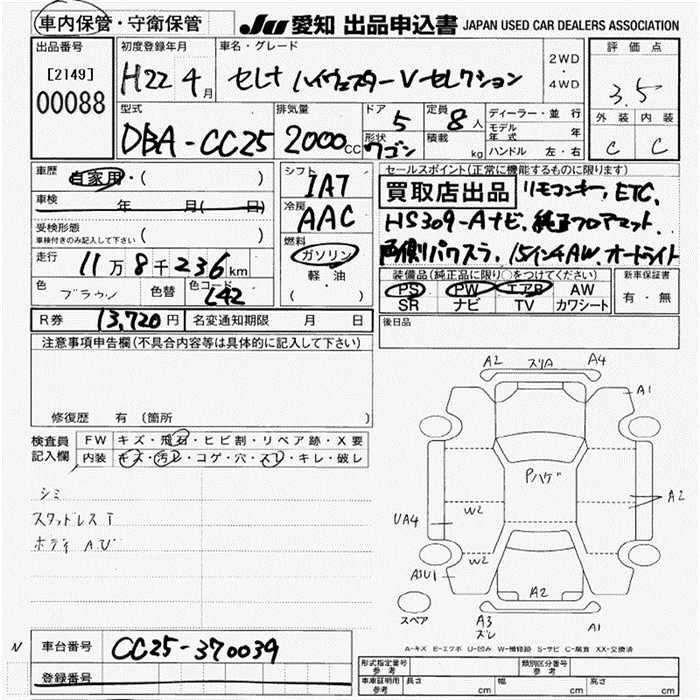 車内保管・守衛保管
JU 愛知 出品申込書 JAPAN USED CAR DEALERS ASSOCIATION
出品番号 初度登録年月 車名・グレード 2WD・4WD 評価点
[2149]
00088 H22 4月 セレナ ハイウェスターVセレクション 3.5
型式 排気量 ドア 定員 ディーラー・並行 外装 内装
DBA-CC25 2000CC 5 8人 モデル年式 年 C C
形状 ワゴン 積載 kg ハンドル 左・右
車歴 自家用・( ) シフト IA7 セールスポイント(正常に機能するものに限ります)
車検 年 月( 日) 冷房 AAC 買取店出品 リモコンキー, ETC,
受検形態 車検付きのみ記入して下さい ( ) HS309-Aナビ, 純正フロアマット,
走行 11万8千236km 燃料 ガソリン・軽・油 ( ) 両側パワスラ, 15インチAW, オートライト
色 ブラウン 色替 色コード L42 装備品(純正品に限り○をつけてください) 新車保証書
PS PW エアB AW 有・無
SR ナビ TV カワシート
R券 13,720円 名変通知期限 月 日 後日品
注意事項申告欄(不具合内容等は具体的に記入して下さい)
修復歴 有 (箇所 )
検査員記入欄 FW キズ・飛石・ヒビ割・リペア跡・X要
内装 キズ・汚レ・コゲ・穴・スレ・キレ・破レ
シミ
スタッドレスT
ボディ A.U
A2 スリA A4
A1
Pハゲ
A2
UA4 W2
W2
A3U1
A2
スペア A3 ズレ A1
A-キズ E-エクボ U-凹み W-補修跡 S-サビ C-腐食 XX-交換済
N 車台番号 CC25-370039
登録番号
形式指定番号 参考 類別区分番号 参考
車庫証明用 参考 長さ cm 幅 cm 高さ cm